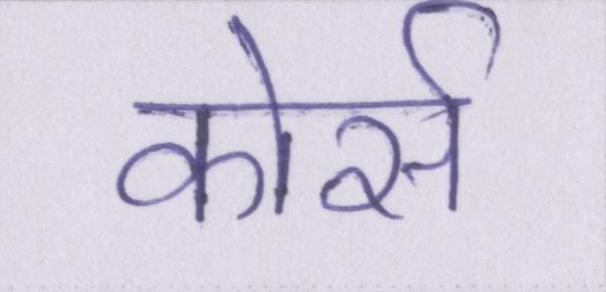 कोर्स